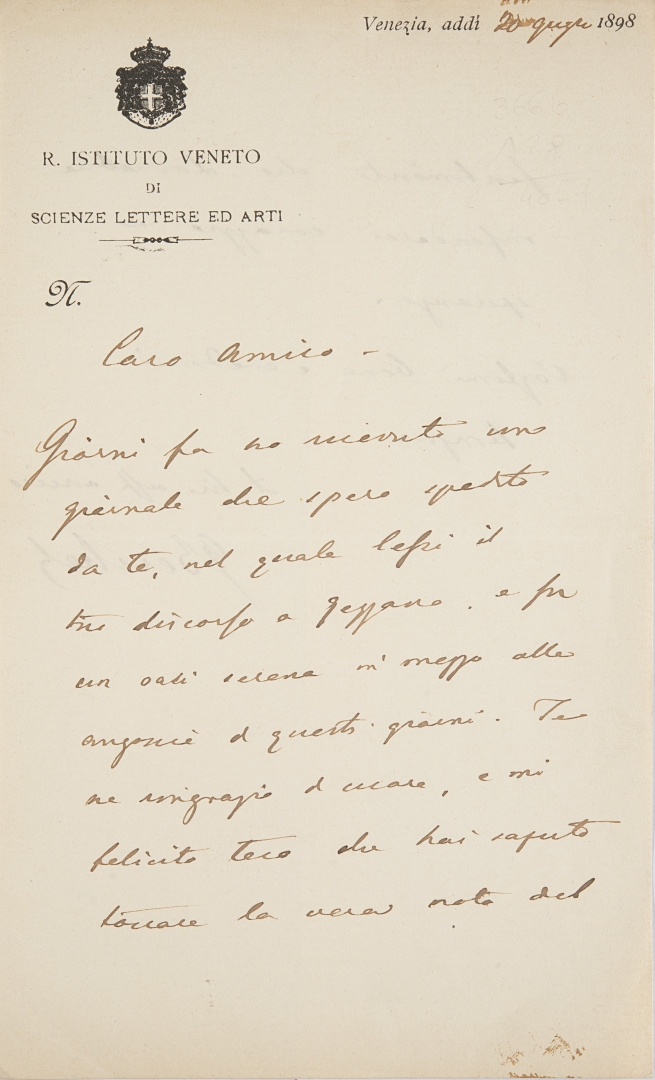 Venezia, addì 20 giugno 1898
R. ISTITUTO VENETO
DI
SCIENZE LETTERE ED ARTI
N.
Caro Amico –
Giorni fa ho ricevuto un
giornale che spero spedito
da te, nel quale lessi il
tuo discorso a , e fu
un oasi serena in mezzo alle
angoscie di questi giorni. Te
ne ringrazio di cuore, e mi
felicito teco che hai saputo
toccare la vera nota del